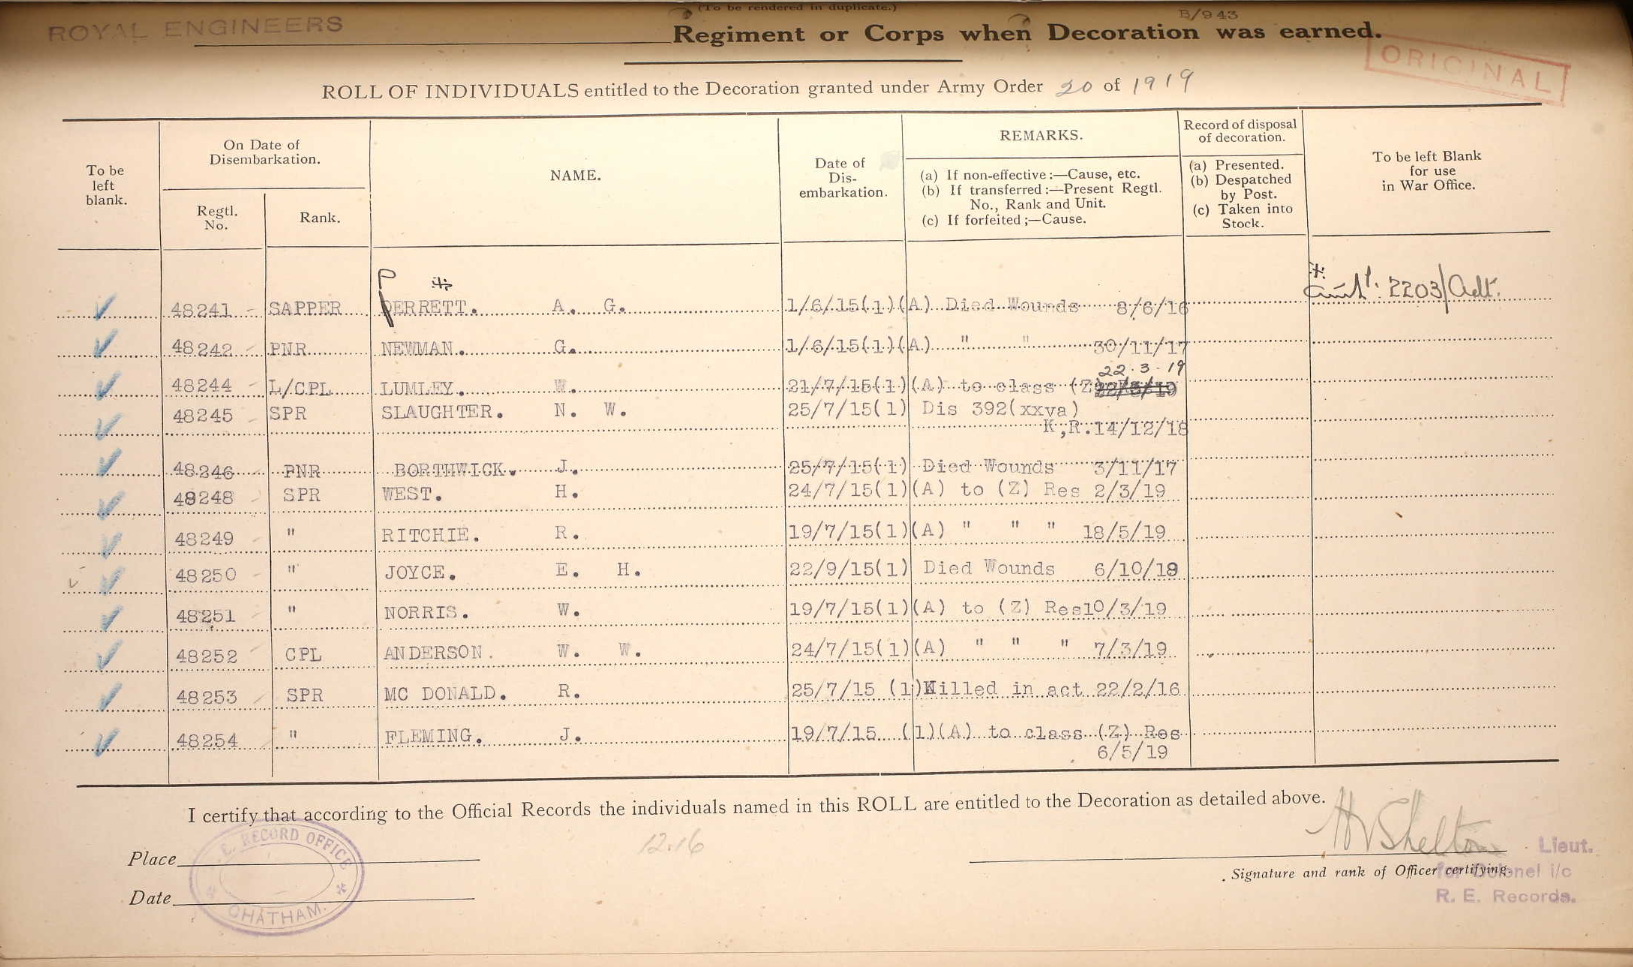 (To be rendered in duplicate.)
B/943
ROYAL ENGINEERS Regiment or Corps when Decoration was earned.
ORIGINAL
ROLL OF INDIVIDUALS entitled to the Decoration granted under Army Order 20 of 1919
To be left blank.
On Date of Disembarkation.
Regtl. No.
Rank.
NAME.
Date of Dis-embarkation.
REMARKS.
(a) If non-effective:—Cause, etc.
(b) If transferred:—Present Regtl. No., Rank and Unit.
(c) If forfeited;—Cause.
Record of disposal of decoration.
(a) Presented.
(b) Despatched by Post.
(c) Taken into Stock.
To be left Blank for use in War Office.
P
2203/Adt.
48241 SAPPER PERRETT. A. G. 1/6/15(1) (A) Died Wounds 8/6/16
48242 PNR NEWMAN. G. 1/6/15(1) (A) " " 30/11/17
22.3.19
48244 L/CPL LUMLEY. W. 21/7/15(1) (A) to class (Z) 22/3/19
48245 SPR SLAUGHTER. N. W. 25/7/15(1) Dis 392(xxva)
K;R.14/12/18
48246 PNR BORTHWICK. J. 25/7/15(1) Died Wounds 3/11/17
48248 SPR WEST. H. 24/7/15(1) (A) to (Z) Res 2/3/19
48249 " RITCHIE. R. 19/7/15(1) (A) " " " 18/5/19
48250 " JOYCE. E. H. 22/9/15(1) Died Wounds 6/10/18
48251 " NORRIS. W. 19/7/15(1) (A) to (Z) Res10/3/19
48252 CPL ANDERSON. W. W. 24/7/15(1) (A) " " " 7/3/19
48253 SPR MC DONALD. R. 25/7/15 (1) Killed in act 22/2/16
48254 " FLEMING. J. 19/7/15 (1) (A) to class (Z) Res
6/5/19
I certify that according to the Official Records the individuals named in this ROLL are entitled to the Decoration as detailed above.
12.16
Place
Date
RECORD OFFICE
CHATHAM.
H V Shelton Lieut.
Signature and rank of Officer certifying.
for Colonel i/c
R. E. Records.